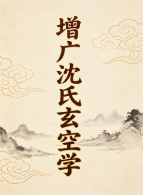 增广沈氏玄空学